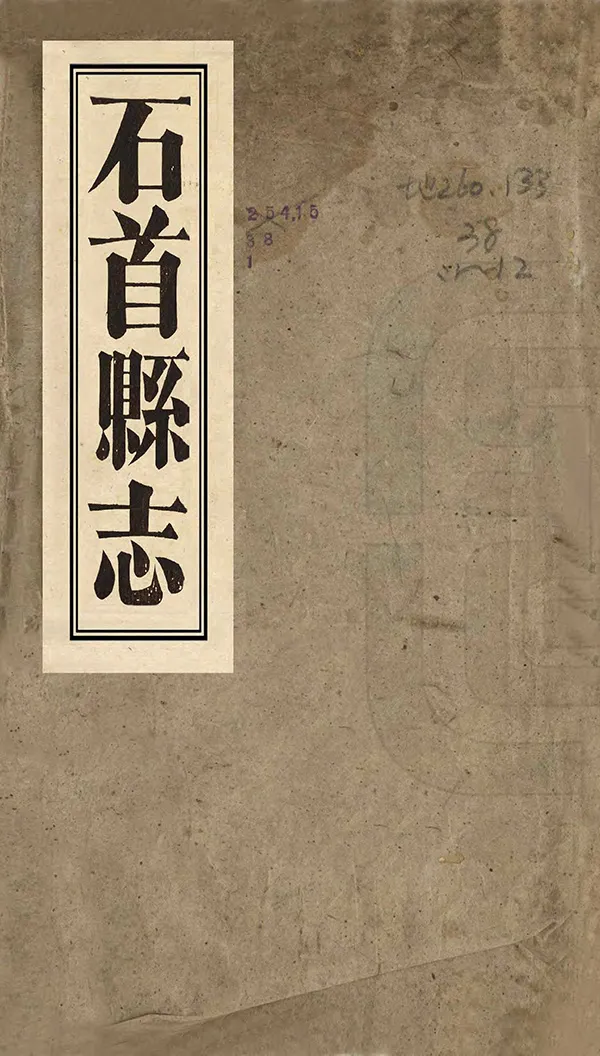 石首縣志
254.15
38
1
地260.133
38